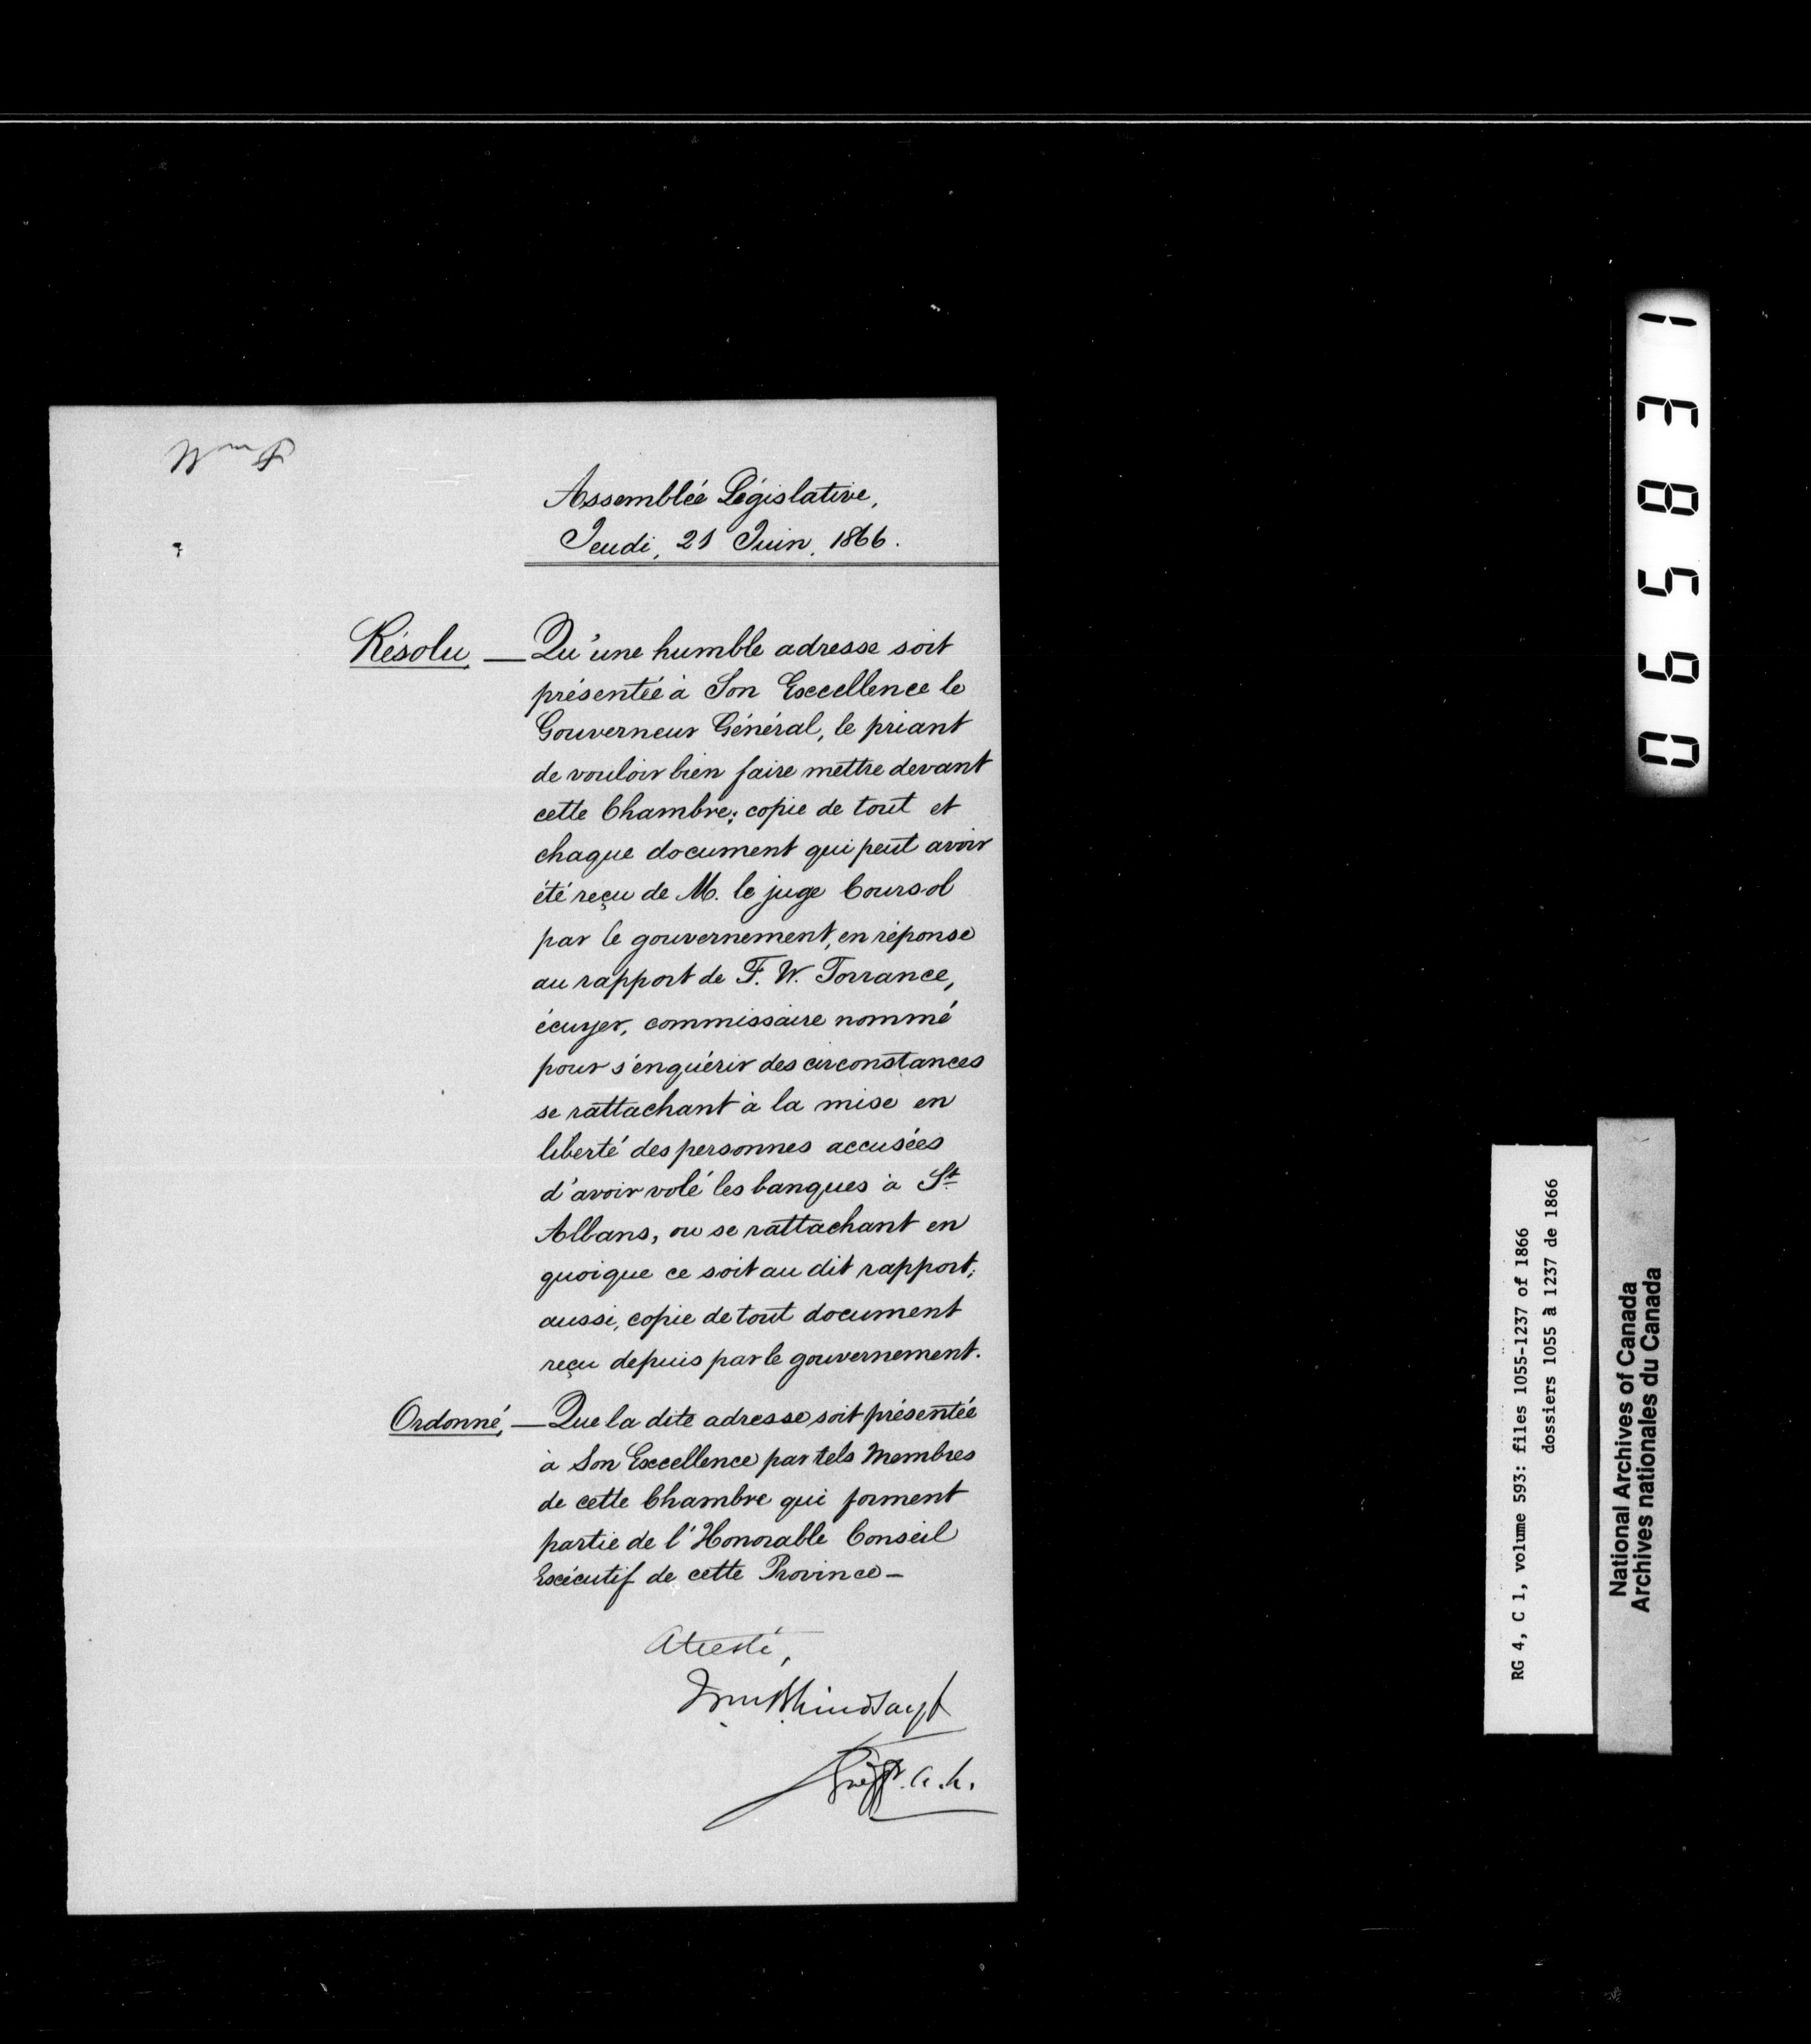 Assemblée Législative,
Jeudi, 21 Juin, 1866.
Résolu, — Qu'une humble adresse soit
présentée à Son Excellence le
Gouverneur Général, le priant
de vouloir bien faire mettre devant
cette Chambre; copie de tout et
chaque document qui peut avoir
été reçu de M. le juge Coursol
par le gouvernement, en réponse
au rapport de F. W. Torrance,
écuyer, commissaire nommé
pour s'enquérir des circonstances
se rattachant à la mise en
liberté des personnes accusées
d'avoir volé les banques à St
Albans, ou se rattachant en
quoique ce soit au dit rapport;
aussi, copie de tout document
reçu depuis par le gouvernement.
Ordonné, — Que la dite adresse soit présentée
à Son Excellence par tels Membres
de cette Chambre qui forment
partie de l'Honorable Conseil
Exécutif de cette Province —
Attesté,
Wm B Lindsay
Greffr. A. L.
065831
RG 4, C 1, volume 593: files 1055-1237 of 1866
dossiers 1055 à 1237 de 1866
National Archives of Canada
Archives nationales du Canada